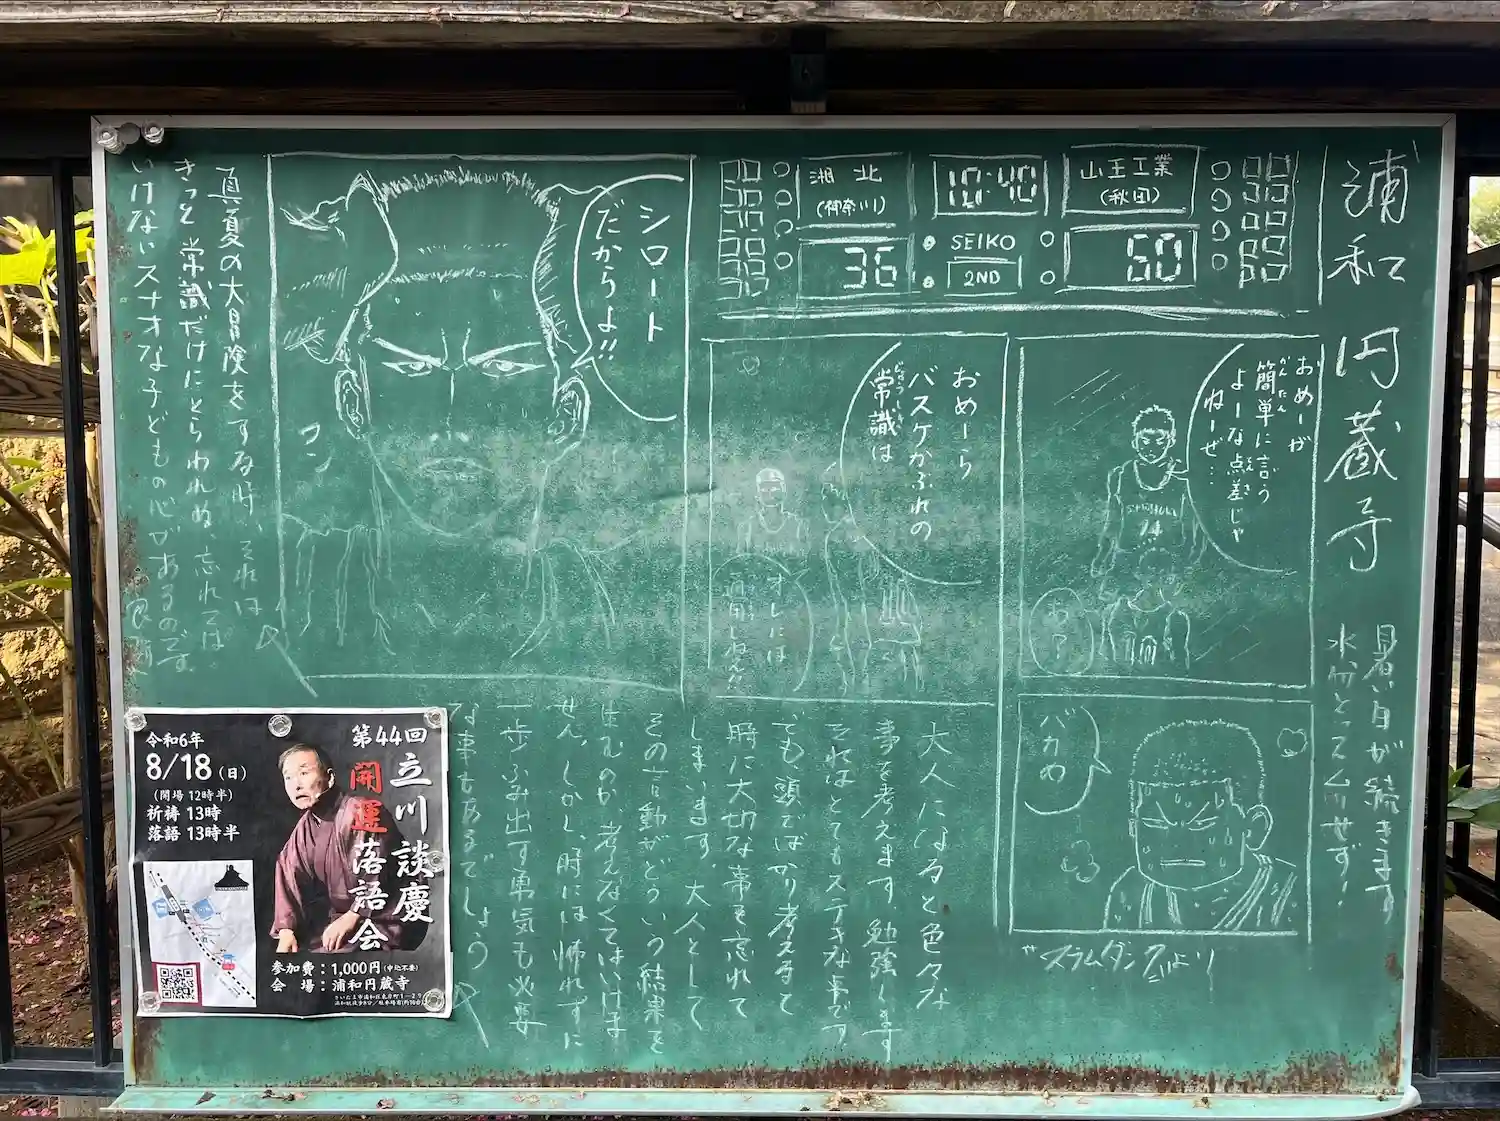 浦和 円蔵寺
暑い日が続きます
水分とってムリせず！
湘北
(神奈川)
36
10:40
SEIKO
2ND
山王工業
(秋田)
60
おめーが
簡単に言う
かんたん
よーな点差じゃ
ねーぜ…
SHOHOKU
14
あ？
バカめ
おめーら
バスケかぶれの
常識は
じょうしき
オレには
通用しねえ！
シロート
だからよ!!
"スラムダンク"より
大人になると色々な
事を考えます。勉強します
それはとてもステキな事です
でも頭でばかり考えて
時に大切な事を忘れて
しまいます。大人として
その言動がどういう結果を
生むのか考えなくてはいけま
せん。しかし、時には怖れずに
一歩ふみ出す勇気も必要
な事もあるでしょう
真夏の大冒険をする時、それは
きっと常識だけにとらわれぬ、忘れては
いけないスナオな子どもの心があるのです。
第44回
立川談慶
開運落語会
令和6年
8/18(日)
(開場 12時半)
祈祷 13時
落語 13時半
参加費：1,000円(申込不要)
会　場：浦和円蔵寺